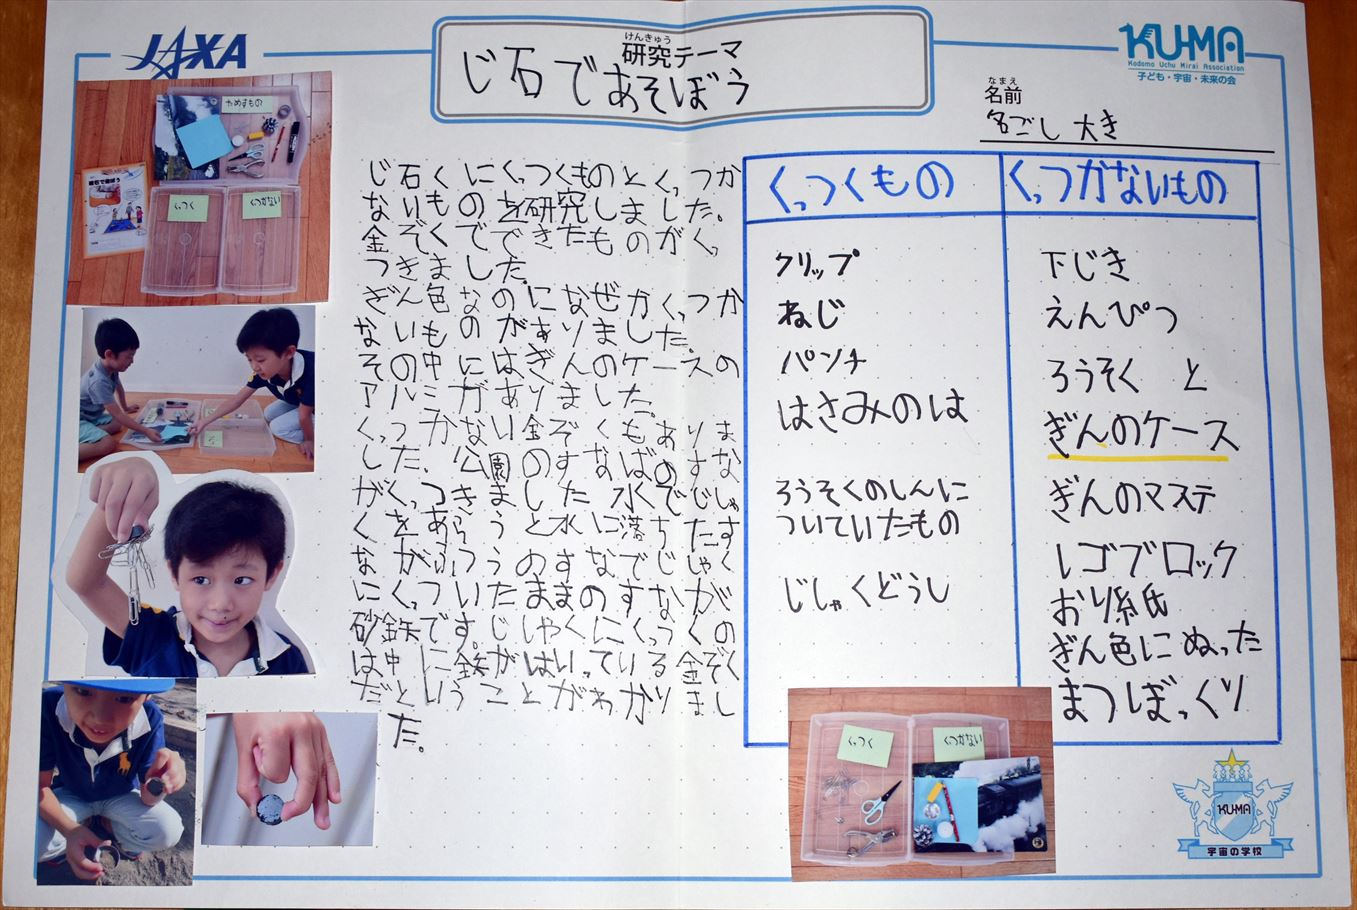 JAXA
けんきゅう
研究テーマ
じ石であそぼう
KU-MA
Kodomo Uchu Mirai Association
子ども・宇宙・未来の会
なまえ
名前
名ごし 大き
ためすもの
くっつく
くつかない
じ石くにくっつくものとくっつか
ないものを研究しました。
金ぞくでできたものがくっ
つきました。
ぎん色なのになぜかくつか
ないものがありました。
その中にはぎんのケースの
アルミがありました。
くっつかない金ぞくもありま
した。公園のすなばのすな
がくっつきました。水でじしゃ
くをあらうと水に落ちたす
なががふうのすなでじしゃく
にくっついたままのすなが
砂鉄です。じしゃくにくっつくの
は中に鉄がはいっている金ぞく
だということがわかりまし
た。
くっつくもの
クリップ
ねじ
パンチ
はさみのは
ろうそくのしんに
ついていたもの
じしゃくどうし
くっつかないもの
下じき
えんぴつ
ろうそく と
ぎんのケース
ぎんのマステ
レゴブロック
おり紙
ぎん色にぬった
まつぼっくり
くっつく
くつかない
KU-MA
宇宙の学校